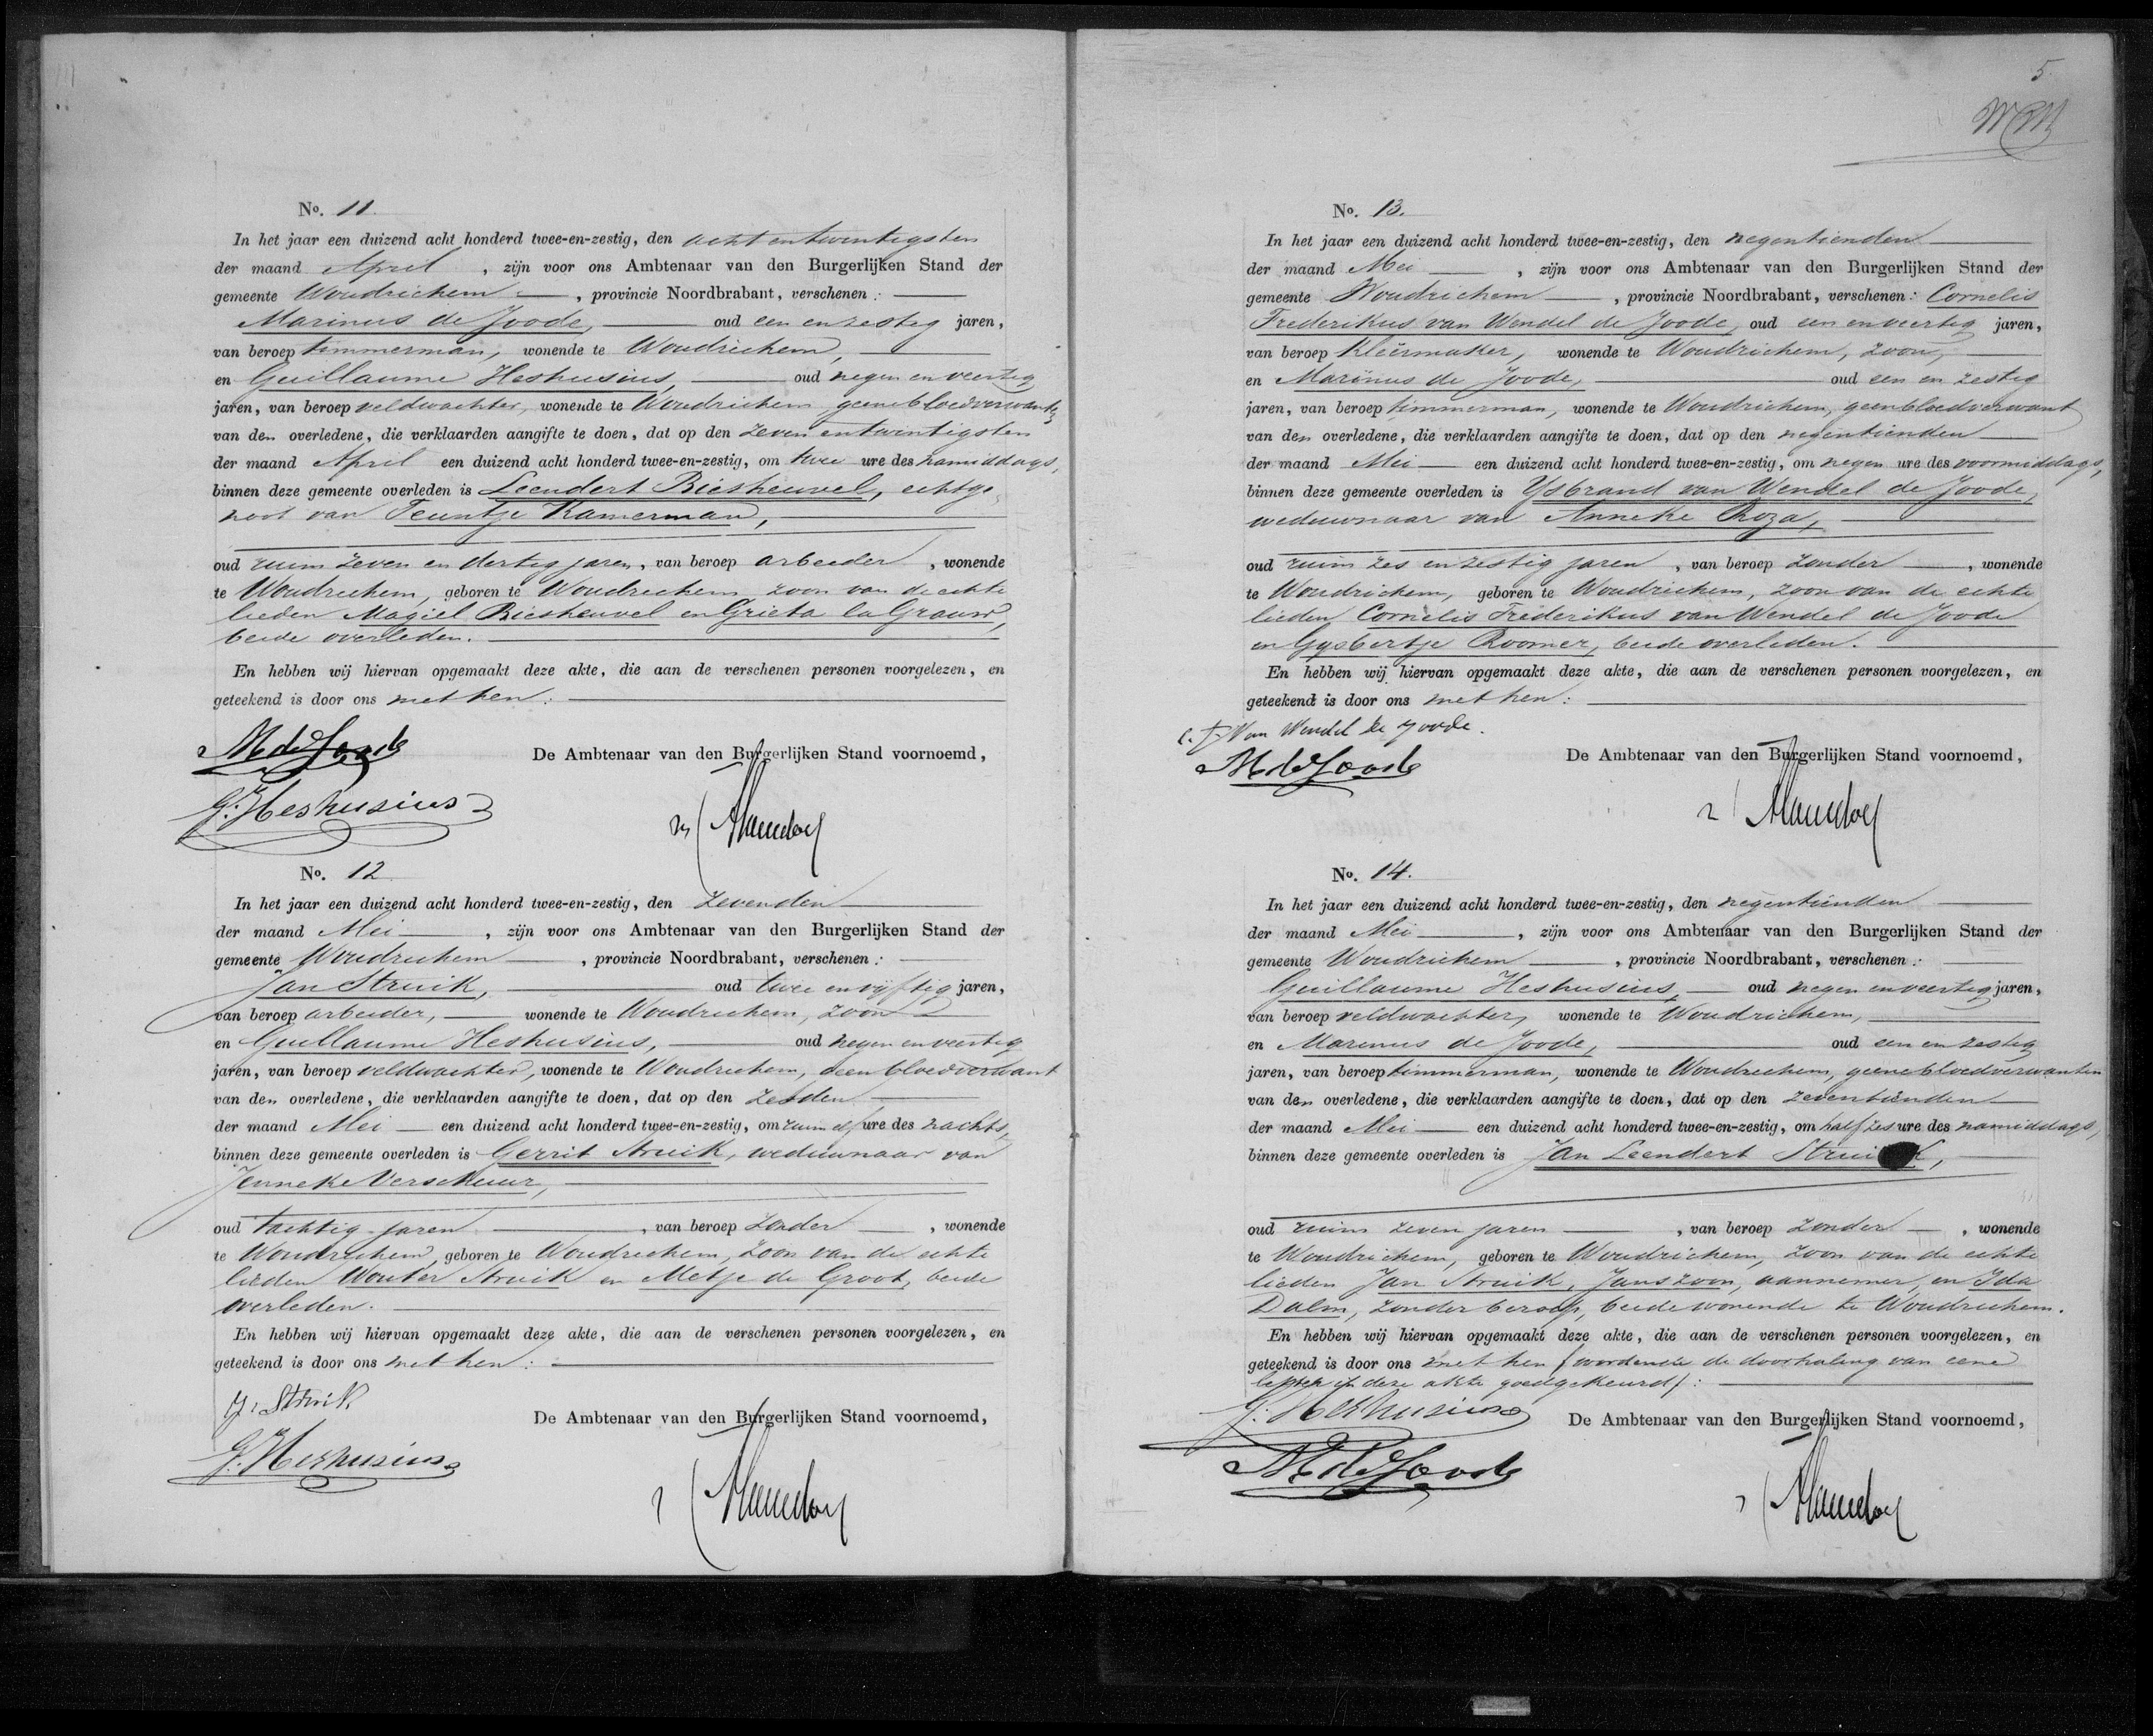 No. 11.
In het jaar een duizend acht honderd twee-en-zestig, den acht en twintigsten
der maand April, zijn voor ons Ambtenaar van den Burgerlijken Stand der
gemeente Woudrichem, provincie Noordbrabant, verschenen:
Marinus de Joode, oud een en zestig jaren,
van beroep timmerman, wonende te Woudrichem,
en Guillaume Heshusius, oud negen en veertig
jaren, van beroep veldwachter, wonende te Woudrichem, geene bloedverwanten
van den overledene, die verklaarden aangifte te doen, dat op den zeven en twintigsten
der maand April een duizend acht honderd twee-en-zestig, om twee ure des namiddags,
binnen deze gemeente overleden is Leendert Biesheuvel, echtge
noot van Teuntje Kamerman,
oud ruim zeven en dertig jaren, van beroep arbeider, wonende
te Woudrichem, geboren te Woudrichem zoon van de echte
lieden Magiel Biesheuvel en Grieta la Grauw,
beide overleden.
En hebben wij hiervan opgemaakt deze akte, die aan de verschenen personen voorgelezen, en
geteekend is door ons met hen:
M de Joode
De Ambtenaar van den Burgerlijken Stand voornoemd,
G. Heshusius
No. 12
In het jaar een duizend acht honderd twee-en-zestig, den zevenden
der maand Mei, zijn voor ons Ambtenaar van den Burgerlijken Stand der
gemeente Woudrichem, provincie Noordbrabant, verschenen:
Jan Struik, oud twee en vijftig jaren,
van beroep arbeider, wonende te Woudrichem, zoon
en Guillaume Heshusius, oud negen en veertig
jaren, van beroep veldwachter, wonende te Woudrichem, geen bloedverwant
van den overledene, die verklaarden aangifte te doen, dat op den zesden
der maand Mei een duizend acht honderd twee-en-zestig, om ruim elf ure des nachts,
binnen deze gemeente overleden is Gerrit Struik, weduwnaar van
Jenneke Verschuur,
oud tachtig jaren, van beroep zonder, wonende
te Woudrichem, geboren te Woudrichem, zoon van de echte
lieden Wouter Struik en Metje de Groot, beide
overleden.
En hebben wij hiervan opgemaakt deze akte, die aan de verschenen personen voorgelezen, en
geteekend is door ons met hen:
J. Struik
De Ambtenaar van den Burgerlijken Stand voornoemd,
G. Heshusius
5
No. 13.
In het jaar een duizend acht honderd twee-en-zestig, den negentienden
der maand Mei, zijn voor ons Ambtenaar van den Burgerlijken Stand der
gemeente Woudrichem, provincie Noordbrabant, verschenen: Cornelis
Frederikus van Wendel de Joode, oud een en veertig jaren,
van beroep Kleêrmaker, wonende te Woudrichem, zoon,
en Marinus de Joode, oud een en zestig
jaren, van beroep timmerman, wonende te Woudrichem, geen bloedverwant
van den overledene, die verklaarden aangifte te doen, dat op den negentienden
der maand Mei een duizend acht honderd twee-en-zestig, om negen ure des voormiddags,
binnen deze gemeente overleden is Ysbrand van Wendel de Joode,
weduwnaar van Anneke Roza,
oud ruim zes en zestig jaren, van beroep zonder, wonende
te Woudrichem, geboren te Woudrichem, zoon van de echte
lieden Cornelis Frederikus van Wendel de Joode
en Gysbertje Roomer, beide overleden.
En hebben wij hiervan opgemaakt deze akte, die aan de verschenen personen voorgelezen, en
geteekend is door ons met hen:
C. F. Van Wendel de Joode.
M de Joode
De Ambtenaar van den Burgerlijken Stand voornoemd,
No. 14.
In het jaar een duizend acht honderd twee-en-zestig, den negentienden
der maand Mei, zijn voor ons Ambtenaar van den Burgerlijken Stand der
gemeente Woudrichem, provincie Noordbrabant, verschenen:
Guillaume Heshusius, oud negen en veertig jaren,
van beroep veldwachter, wonende te Woudrichem,
en Marinus de Joode, oud een en zestig
jaren, van beroep timmerman, wonende te Woudrichem, geene bloedverwanten
van den overledene, die verklaarden aangifte te doen, dat op den zeventienden
der maand Mei een duizend acht honderd twee-en-zestig, om half zes ure des namiddags,
binnen deze gemeente overleden is Jan Leendert Struik,
oud ruim zeven jaren, van beroep zonder, wonende
te Woudrichem, geboren te Woudrichem, zoon van de echte
lieden Jan Struik, Janszoon, aannemer, en Ida
Dalm, zonder beroep, beide wonende te Woudrichem.
En hebben wij hiervan opgemaakt deze akte, die aan de verschenen personen voorgelezen, en
geteekend is door ons met hen (wordende de doorhaling van eene
letter in deze akte goedgekeurd):
G. Heshusius
De Ambtenaar van den Burgerlijken Stand voornoemd,
M de Joode